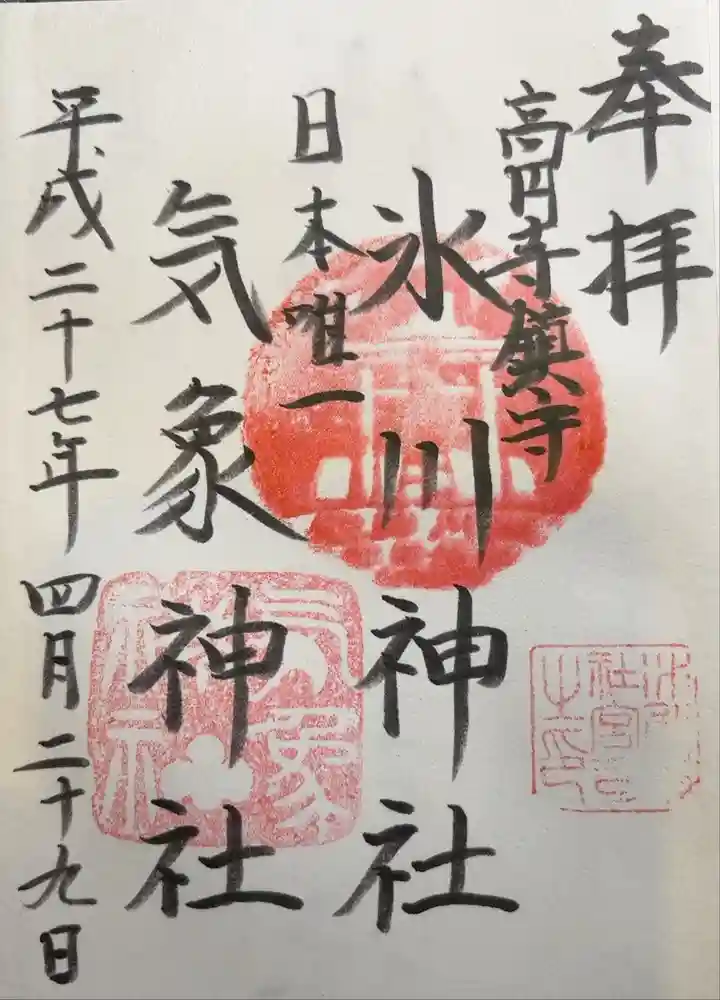 奉拝
高円寺鎮守
氷川神社
日本唯一
気象神社
平成二十七年四月二十九日
気象
神社